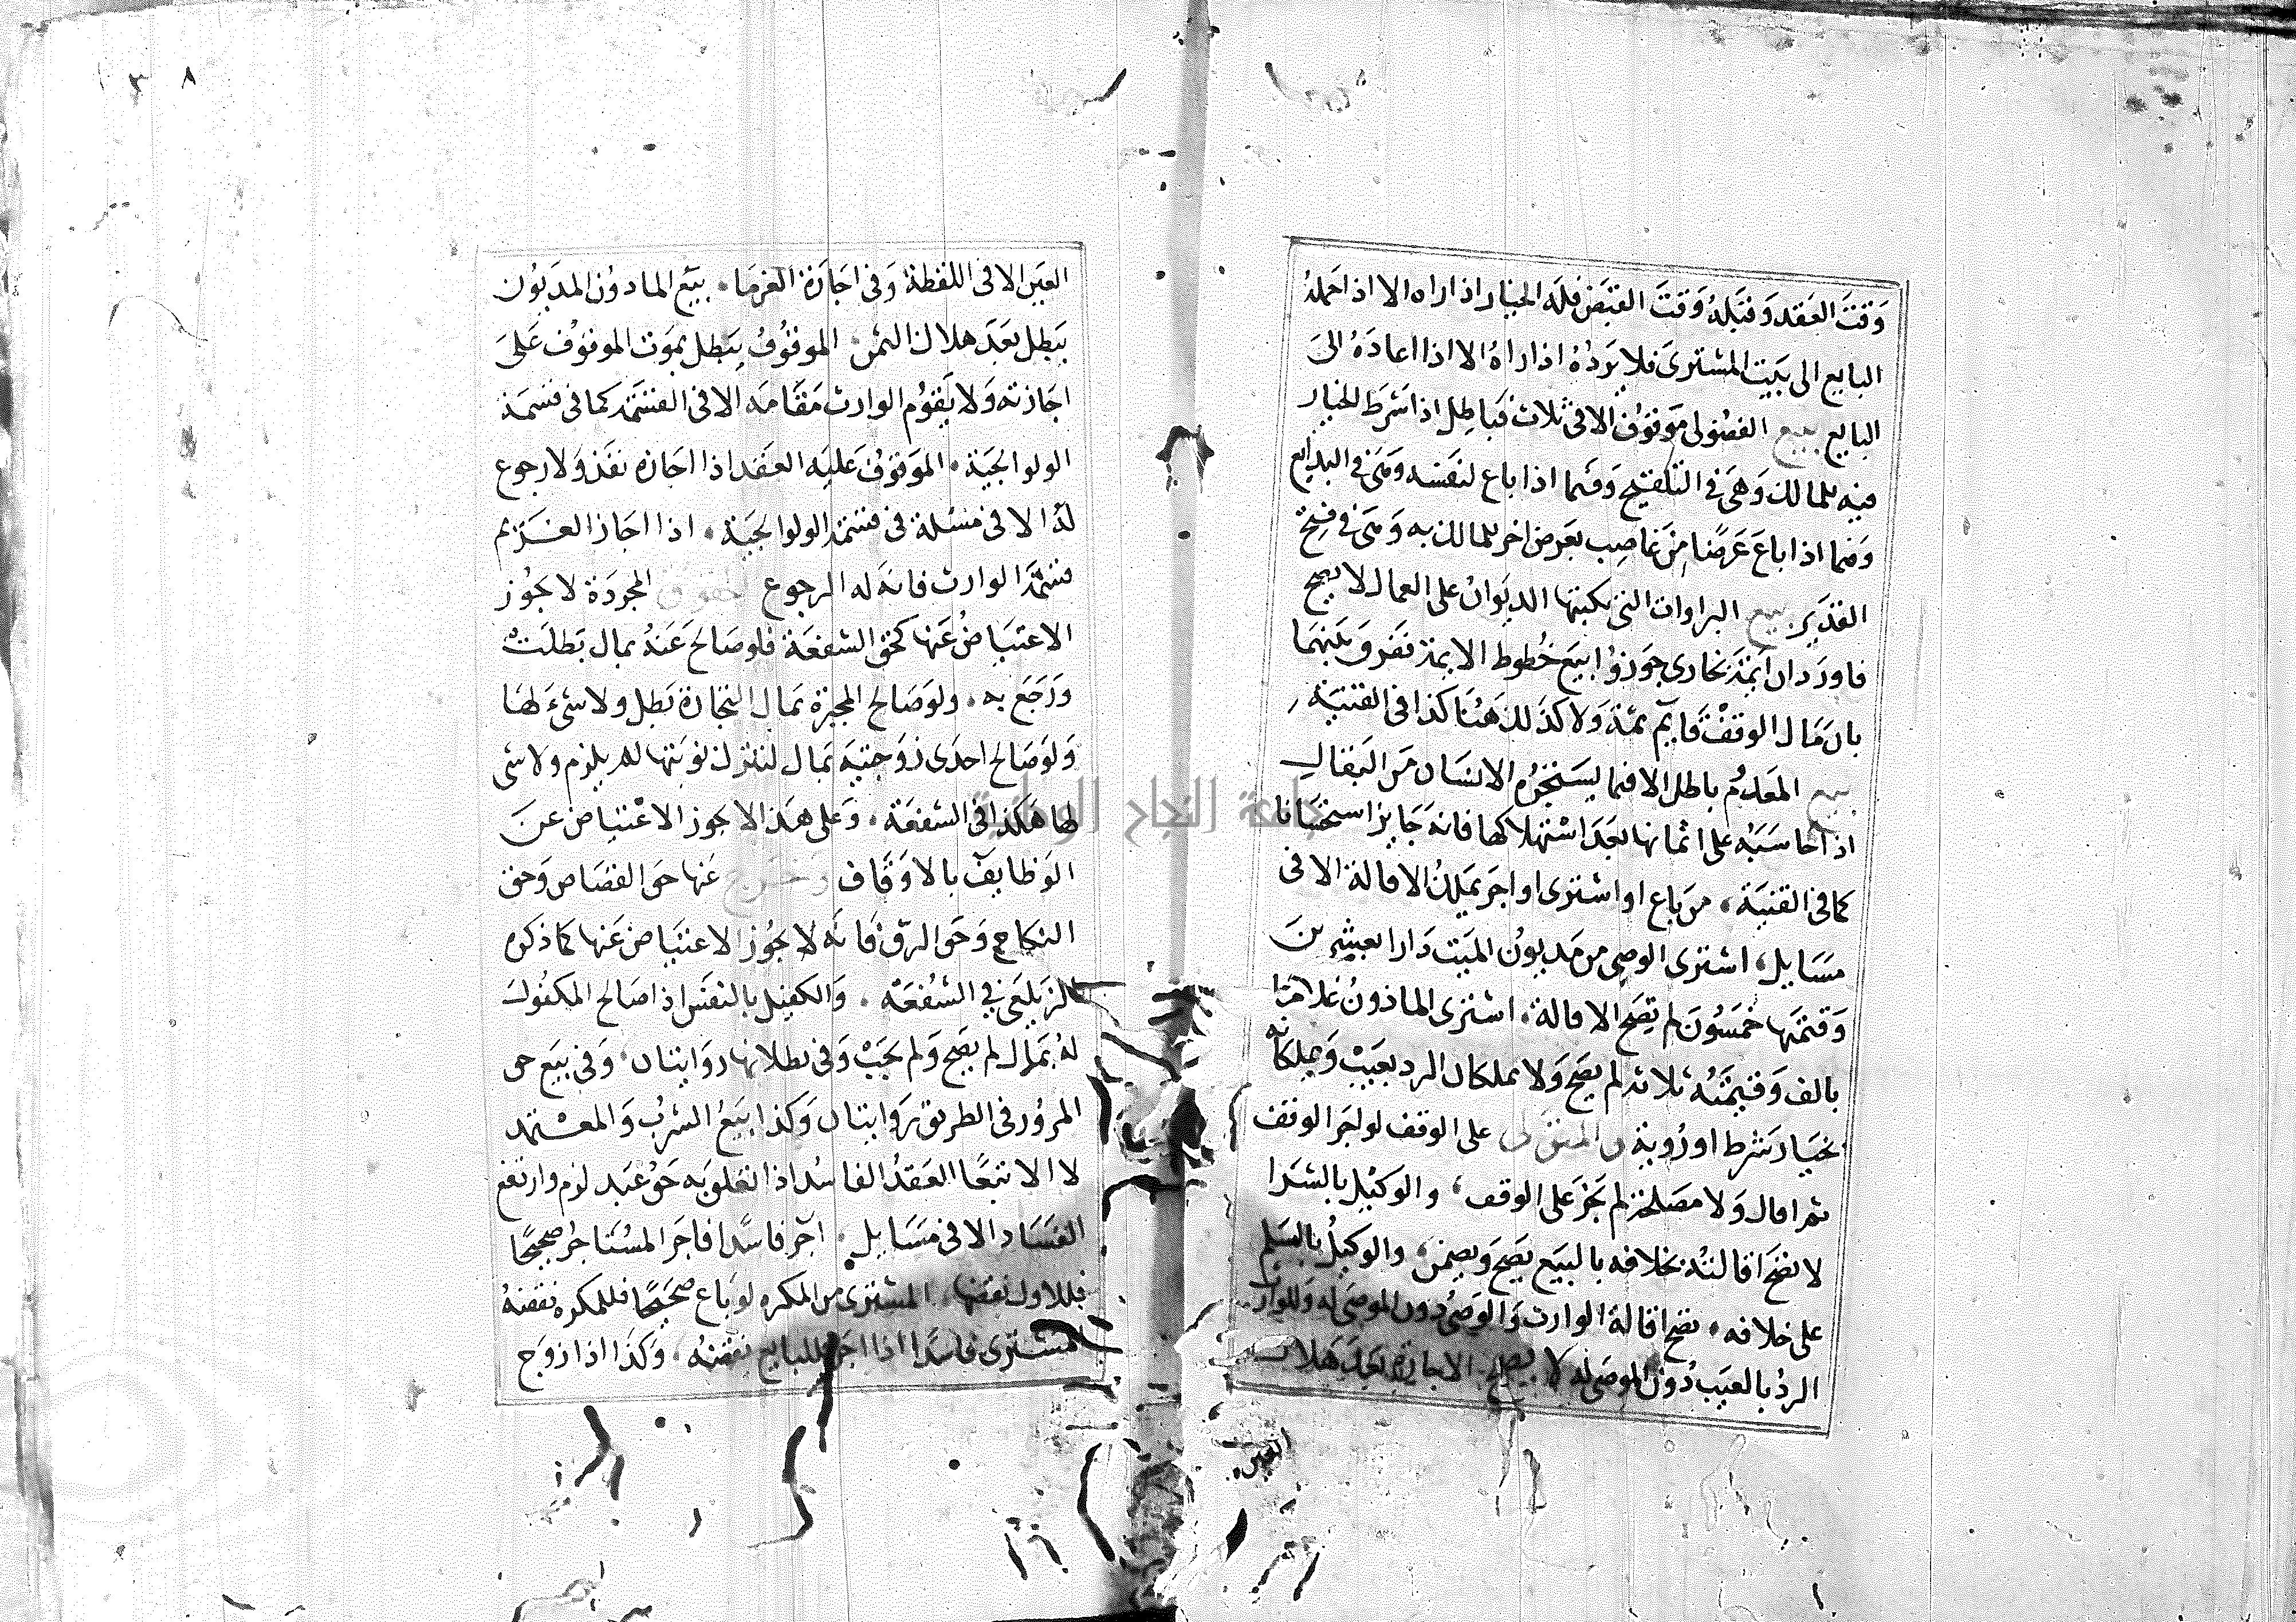 وقت العقد وقبله وقت القبض فله الخيار اذا راه الا اذا حمله
البايع الى بيت المشترى فلا يرده اذا راه الا اذا اعاده الى
البايع بيع الفضولى موقوف الا فى ثلاث فباطل اذا شرط الخيار
فيه للمالك وهى فى التلقيح وفيما اذا باع لنفسه وهى فى البدايع
وفيما اذا باع عرضا من غاصب بعرض اخر للمالك به وهى فى فتح
القدير بيع البراوات التى يكتبها الديوان على العمال لا يصح
فاورد ان ايمة بخارى جوزوا بيع خطوط الايمة ففرق بينهما
بان مال الوقف قايم ثمة ولا كذلك هنا كذا فى القنية
بيع المعدوم باطل الا فيما يستجره الانسان من البقال
اذا حاسبه على اثمانها بعد استهلاكها فانه جايز استحسانا
كما فى القنية من باع او اشترى او اجر يملك الاقالة الا فى
مسايل اشترى الوصى من مديون الميت دارا بعشرين
وقيمتها خمسون لم تصح الاقالة اشترى الماذون غلاما
بالف وقيمته ثلاثة لم يصح ولا يملكان الرد بعيب ويملكانه
بخيار شرط او روية المتولى على الوقف لو اجر الوقف
ثم اقال ولا مصلحة لم يجز على الوقف والوكيل بالشرا
لا تصح اقالته بخلافه بالبيع يصح ويضمن والوكيل بالسلم
على خلافه تصح اقالة الوارث والوصى دون الموصى له وللوارث
الرد بالعيب دون الموصى له لا يصح الاجازة بعد هلاك
العين
٣٨
العين الا فى اللقطة وفى اجازة الغرما بيع الماذون المديون
يبطل بعد هلاك الثمن الموقوف يبطل بموت الموقوف على
اجازته ولا يقوم الوارث مقامه الا فى القسمة كما فى قسمة
الولوالجية الموقوف عليه العقد اذا اجازه نفذ ولا رجوع
له الا فى مسئلة فى قسمة الولوالجية اذا اجاز الغريم
قسمة الوارث فانه له الرجوع الحقوق المجردة لا يجوز
الاعتياض عنها كحق الشفعة فلو صالح عنه بمال بطلت
ورجع به ولو صالح المخيرة بمال لتختاره بطل ولا شىء لها
ولو صالح احدى زوجتيه بمال لتترك نوبتها لم يلزم ولا شى
لها هكذا فى الشفعة وعلى هذا لا يجوز الاعتياض عن
الوظايف بالاوقاف وخرج عنها حق القصاص وحق
النكاح وحق الرق فانه لا يجوز الاعتياض عنها كما ذكره
الزيلعى فى الشفعة والكفيل بالنفس اذا صالح المكفول
له بمال لم يصح ولم يجب وفى بطلانها روايتان وفى بيع حق
المرور فى الطريق روايتان وكذا بيع الشرب والمعتمد
لا الا تبعا العقد الفاسد اذا تعلق به حق عبد لزم وارتفع
الفساد الا فى مسايل اجر فاسدا فاجر المستاجر صحيحا
فللاول نقضها المشترى من المكره لو باع صحيحا فللمكره نقضه
المشترى فاسدا اذا اجر للبايع نقضه وكذا اذا زوج
جامعة النجاح الوطنية